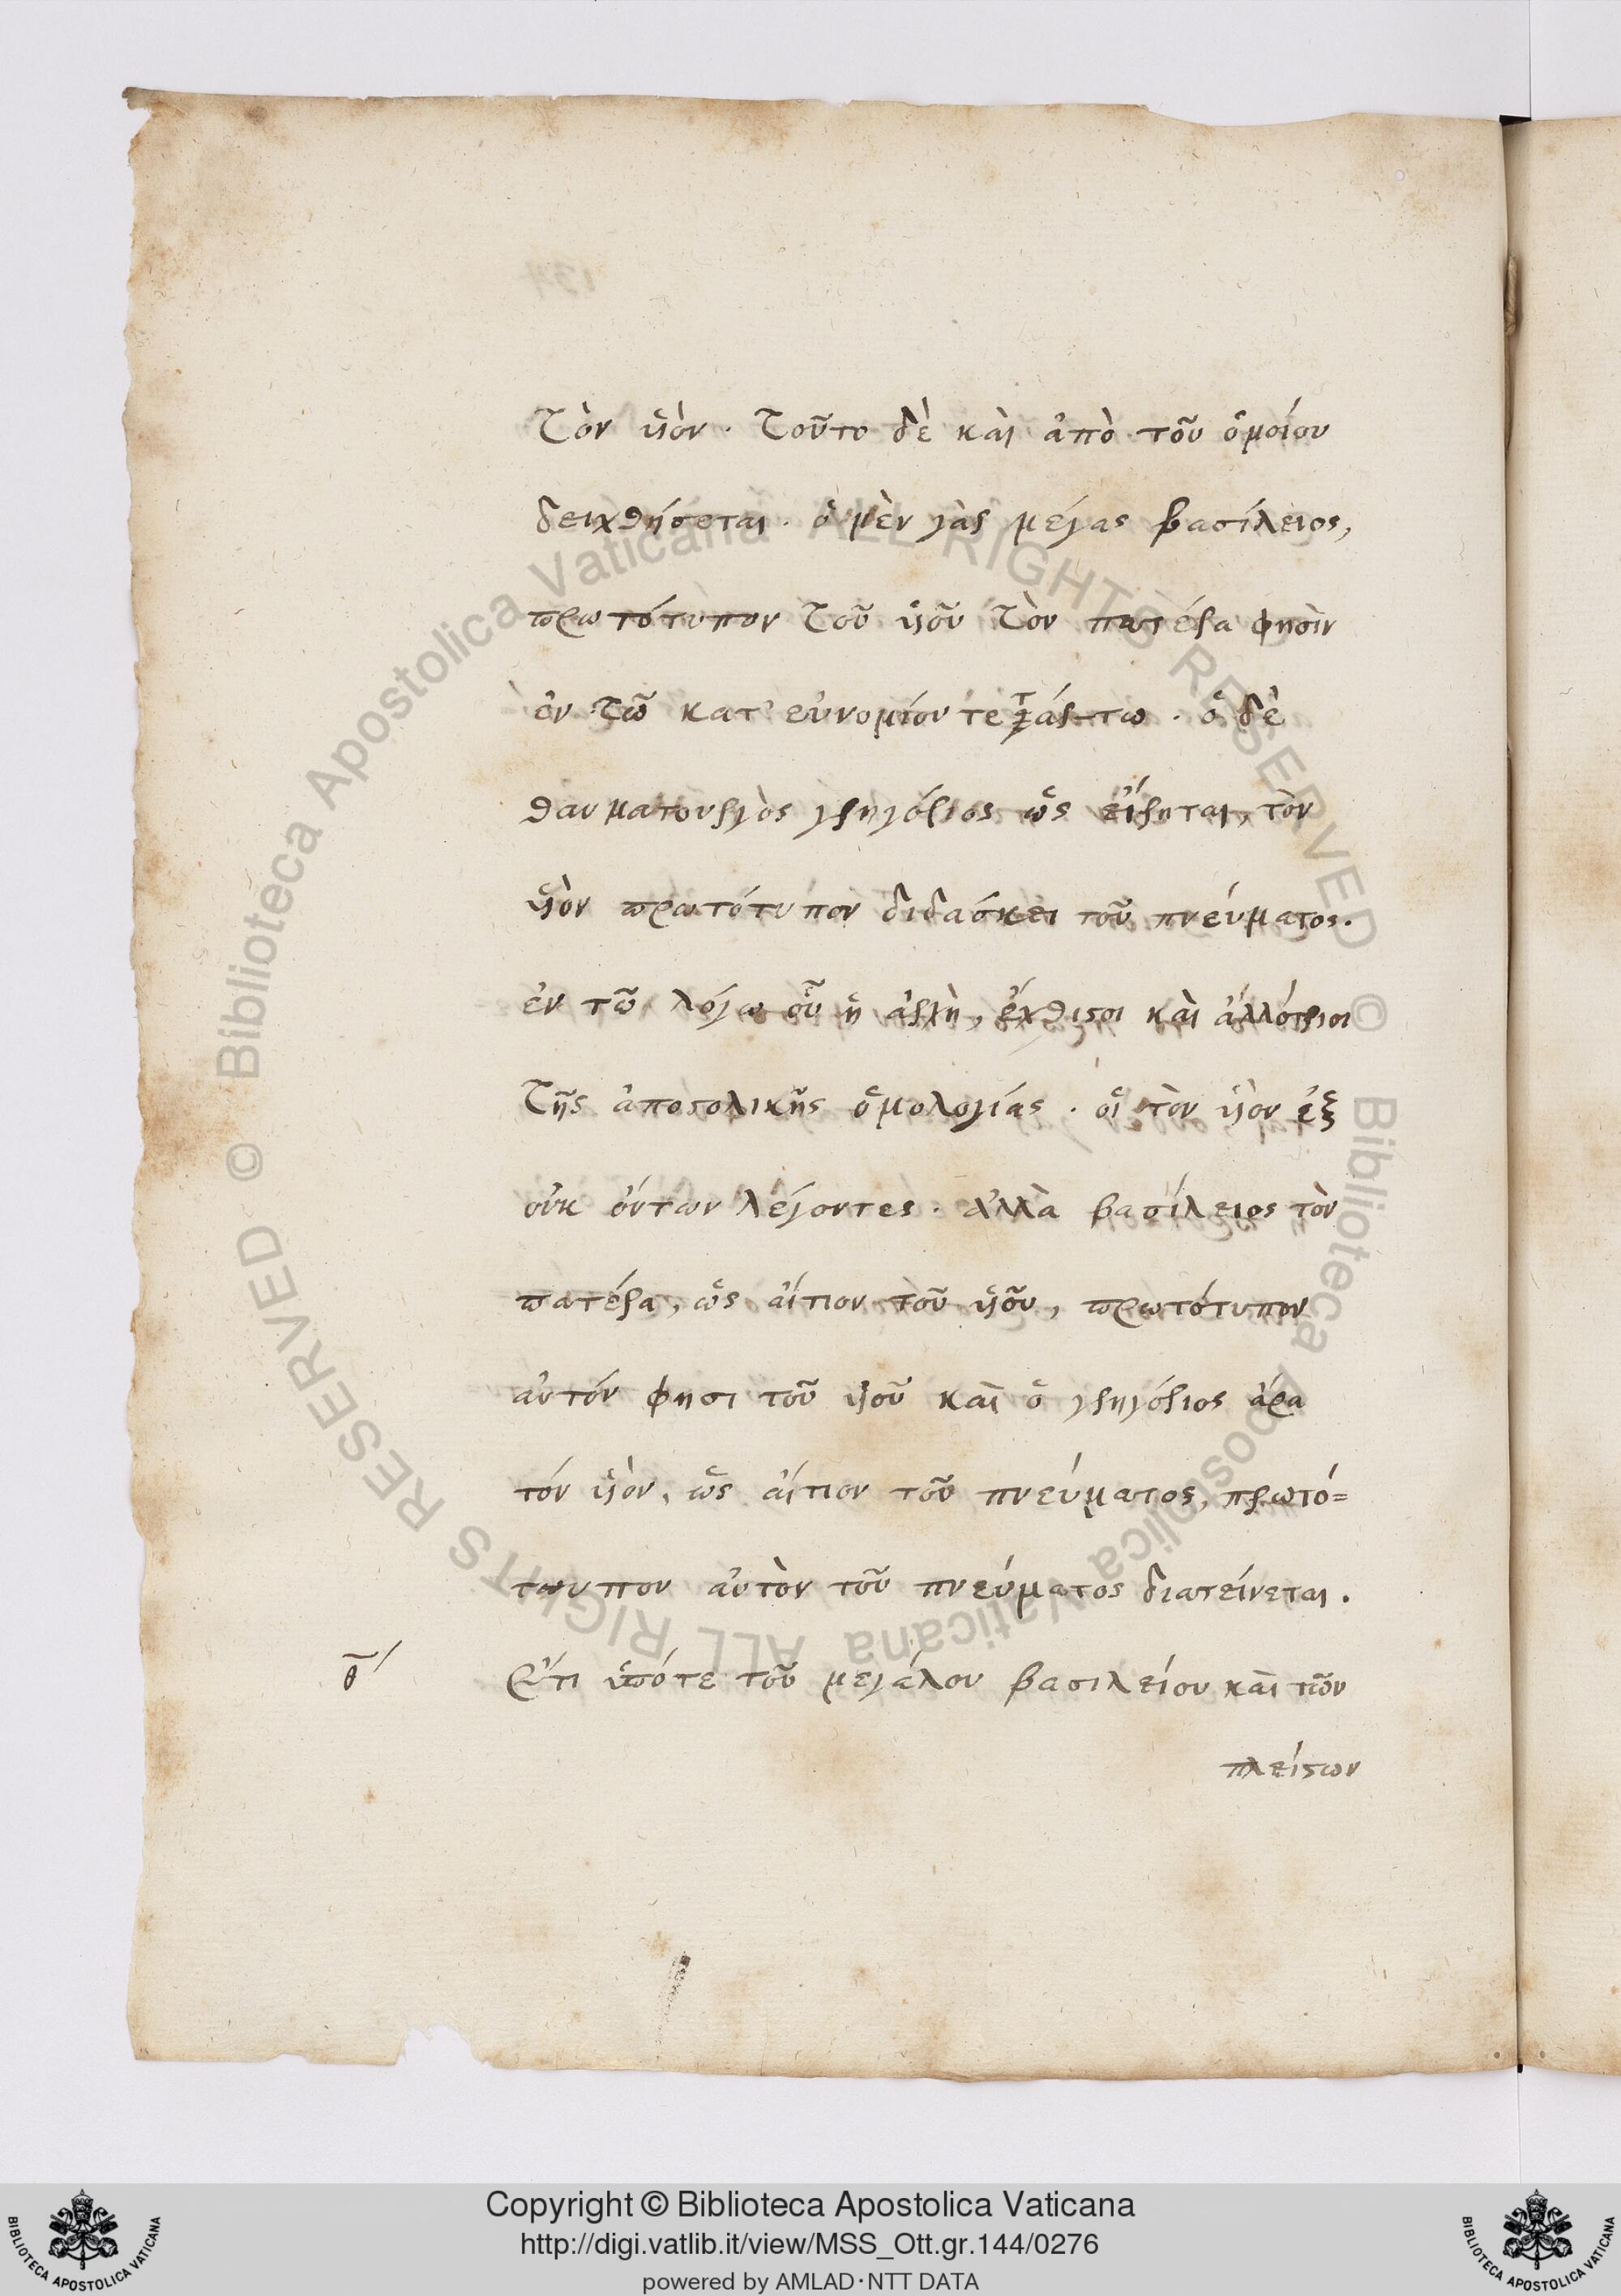 τὸν ὑϊὸν · τοῦτο δὲ καὶ ἀπὸ τοῦ ὁμοίου
δειχθήσεται · ὁ μὲν γὰρ μέγας βασίλειος,
πρωτότυπον τοῦ ὑϊοῦ τὸν πατέρα φησὶν
ἐν τῶ κατ' εὐνομίου τετάρτω · ὁ δὲ
θαυματουργὸς γρηγόριος ὡς εἴρηται, τὸν
ὑϊὸν πρωτότυπον διδάσκει τοῦ πνεύματος.
ἐν τῶ λόγω οὗ ἡ ἀρχὴ, ἔχθιστοι καὶ ἀλλότριοι
τῆς ἀποστολικῆς ὁμολογίας · οἱ τὸν ὑϊὸν ἐξ
οὐκ ὄντων λέγοντες · ἀλλὰ βασίλειος τὸν
πατέρα, ὡς αἴτιον τοῦ ὑϊοῦ, πρωτότυπον
αὐτόν φησι τοῦ ὑϊοῦ καὶ ὁ γρηγόριος ἄρα
τόν ὑϊὸν, ὡς αἴτιον τοῦ πνεύματος, πρωτό=
τυπον αὐτὸν τοῦ πνεύματος διατείνεται.
Ὅτι ὑπότε τοῦ μεγάλου βασιλείου καὶ τῶν
πλείστων
Copyright © Biblioteca Apostolica Vaticana
http://digi.vatlib.it/view/MSS_Ott.gr.144/0276
powered by AMLAD·NTT DATA
BIBLIOTECA APOSTOLICA VATICANA
BIBLIOTECA APOSTOLICA VATICANA
© Biblioteca Apostolica Vaticana ALL RIGHTS RESERVED
© Biblioteca Apostolica Vaticana ALL RIGHTS RESERVED